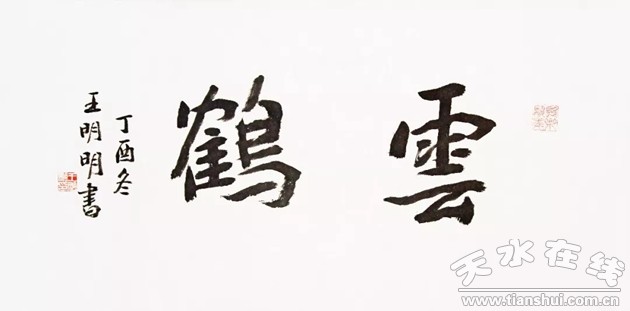 雲鶴
丁酉冬
王明明書
天水在线
www.tianshui.com.cn